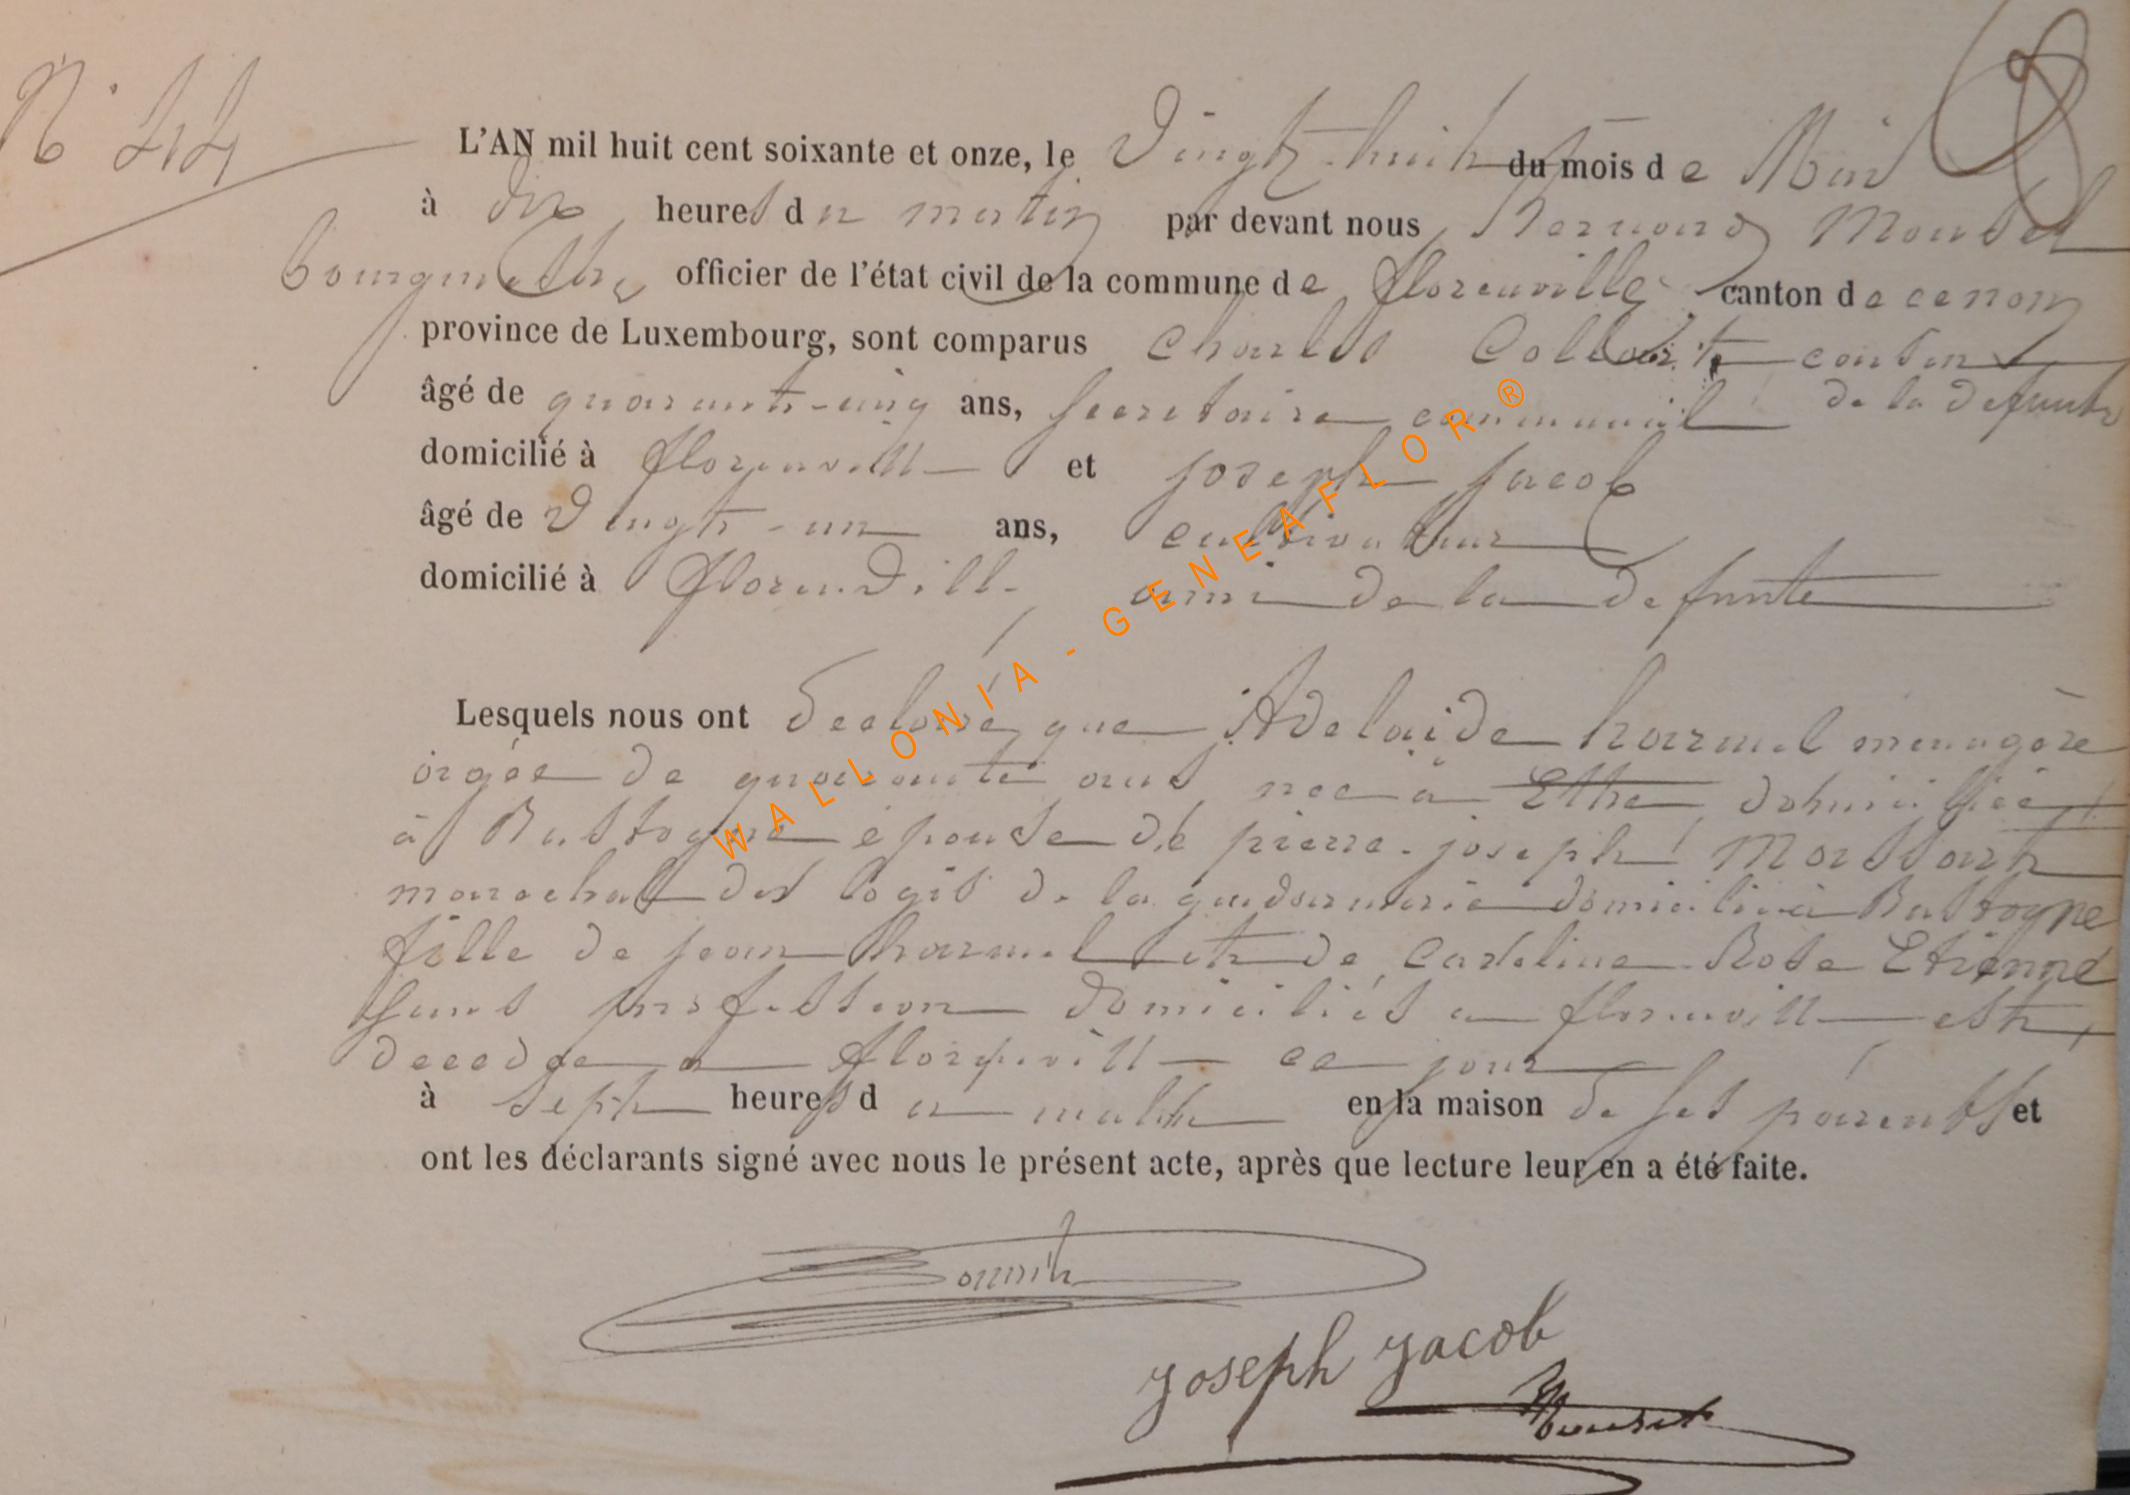 N° 44
L'AN mil huit cent soixante et onze, le Vingt-huit du mois de Mai
à dix heures du matin par devant nous Bernard Mouset
bourgmestre officier de l'état civil de la commune de florenville canton de
province de Luxembourg, sont comparus Charles cousin
âgé de quarante-cinq ans, secretaire communal de la defunte
domicilié à florenville et joseph jacob
âgé de Vingt-un ans, cultivateur
domicilié à florenville ami de la defunte
Lesquels nous ont declaré que Adelaïde harmel menagère
agée de quarante ans née à Ethe domiciliée
à Bastogne épouse de pierre-joseph Massart
marechal des logis de la gendarmerie domicilié à Bastogne
fille de jean harmel et de Rose Etienne
sans profession domiciliés a florenville est
decedee a florenville ce jour
à sept heures du matin en la maison de ses parents et
ont les déclarants signé avec nous le présent acte, après que lecture leur en a été faite.
Joseph Jacob
Mouset
WALLONIA - GENEAFLOR ®